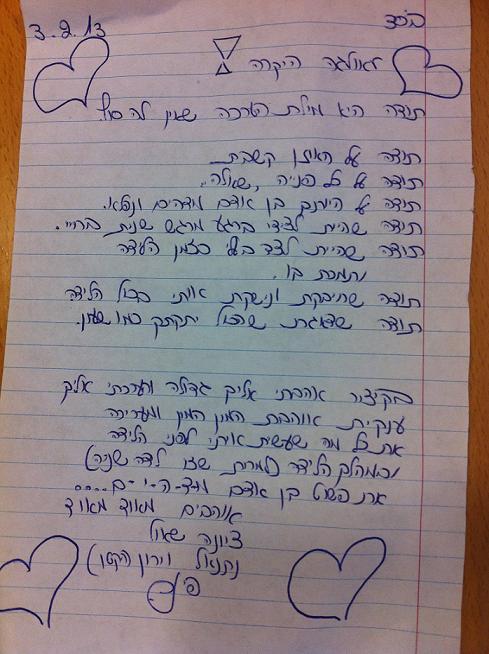 בס״ד
3.9.13
לאולגה היקרה
תודה היא מילת הערכה שאין לה סוף.
תודה על האוזן קשבת
תודה על כל פניה, שאלה..
תודה על היותך בן אדם מדהים ונפלא.
תודה שהיית לצידי ברגע מרגש שנית בחיי..
תודה שהיית לצד בעלי בזמן הלידה
ותמכת בו.
תודה שחיבקת ונישקת אותי בכול הלידה
תודה שדאגת שהכול יתקתק כמו שעון.
בקיצור אהבתי אליך גדולה והערכתי אליך
ענקית אוהבת המון המון ומעריכה
את כל מה שעשית איתי לפני הלידה
ובמהלך הלידה (למרות שזו לדה שניה)
את פשוט בן אדם מד-ה-י-ם....
אוהבים מאוד מאוד
ציונה שאול
נתנאל וירון הקטן)